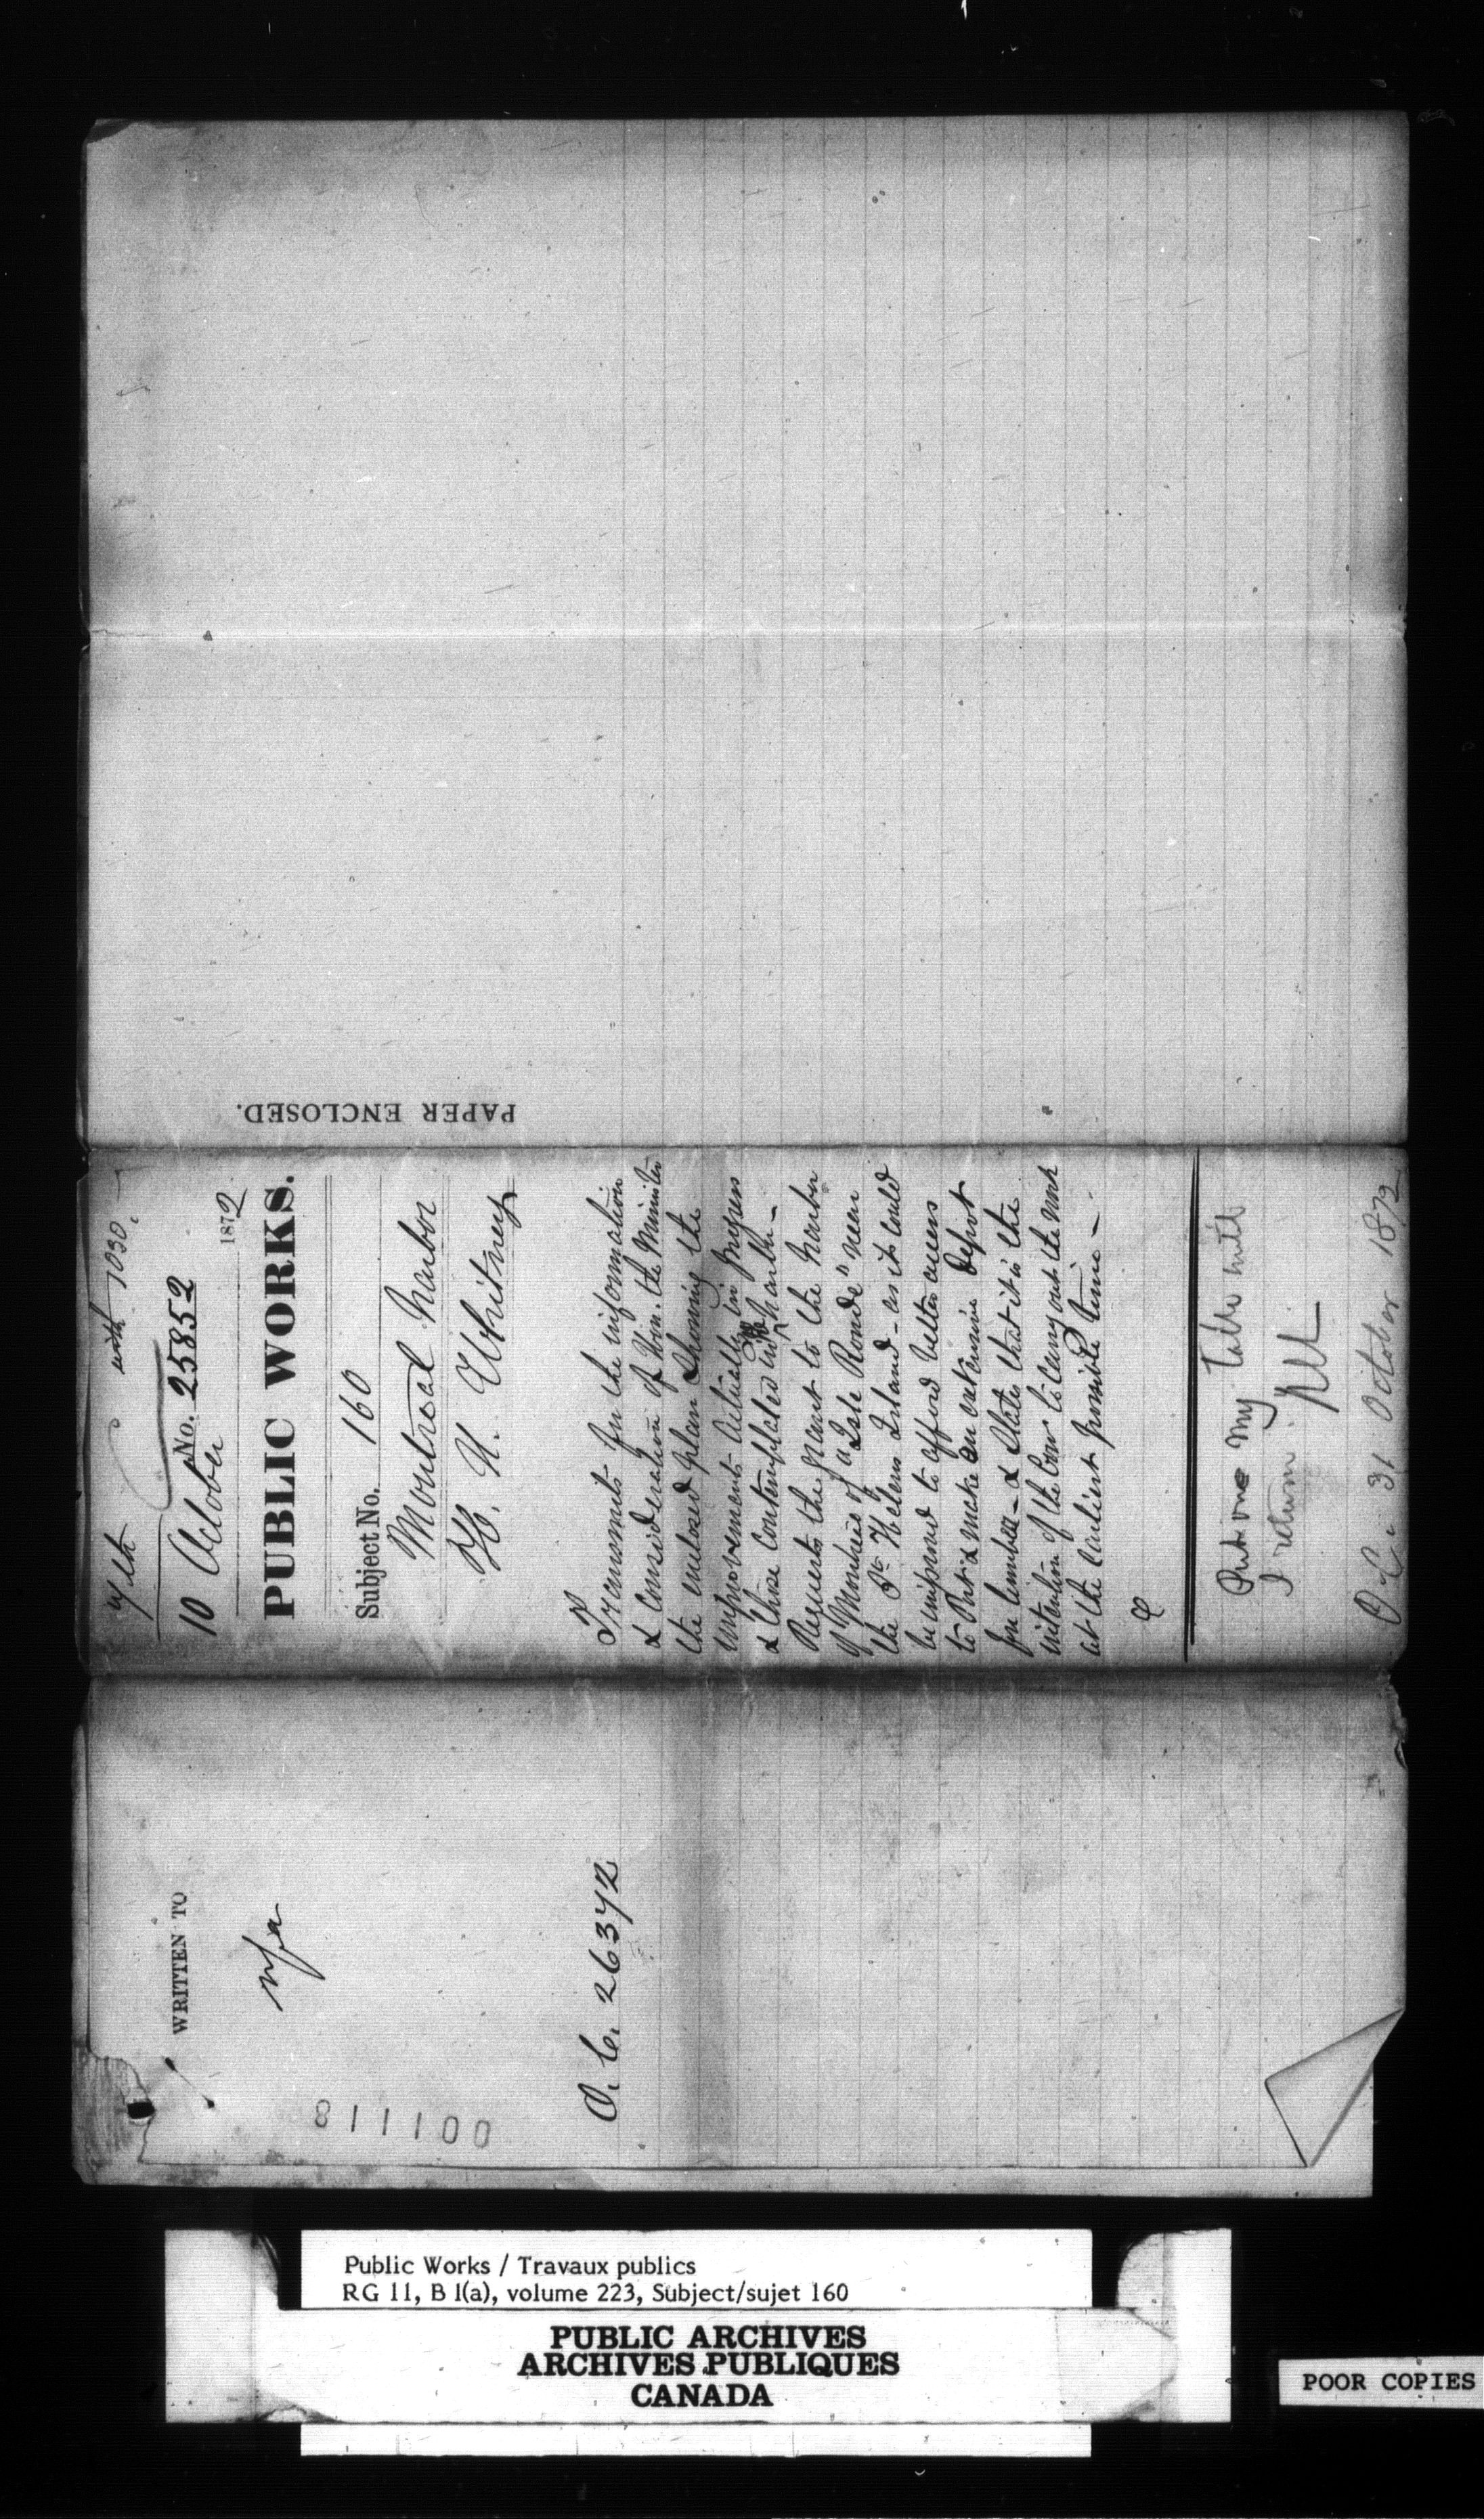 with 7030.
No. 25852
10 October 1872
PUBLIC WORKS.
Subject No. 160
Montreal Harbor
H. H. Whitney
Transmits for the information
& Consideration of Hon. the Minister
the enclosed plan showing the
improvements actually in progress
& those Contemplated in the harbor –
Requests the grant to the Harbor
of Montreal of "Isle Ronde" near
the St Helens Island – as it could
be improved to afford better access
to Port & make an extensive depot
for lumber – & States that it is the
intention of the Com. to carry out the work
at the earliest possible time –
Put on my Table until
I return.
O.C. 31 October 1872
PAPER ENCLOSED.
WRITTEN TO
O.C. 26372
811100
Public Works / Travaux publics
RG 11, B 1(a), volume 223, Subject/sujet 160
PUBLIC ARCHIVES
ARCHIVES PUBLIQUES
CANADA
POOR COPIES